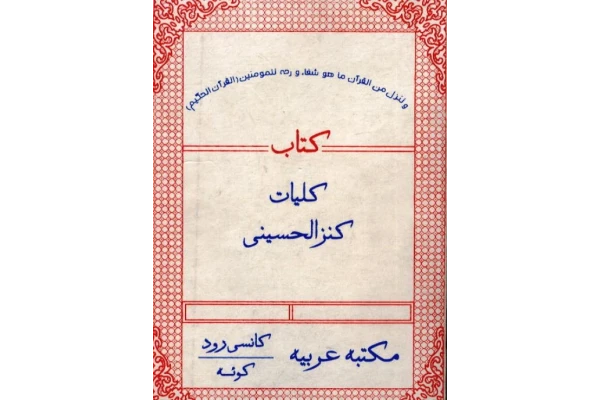 وننزل من القرآن ما هو شفاء و رحمة للمومنين (القرآن الحکیم)
کتاب
کلیات
کنز الحسینی
مکتبه عربیه کانسی رود
کوئٹه